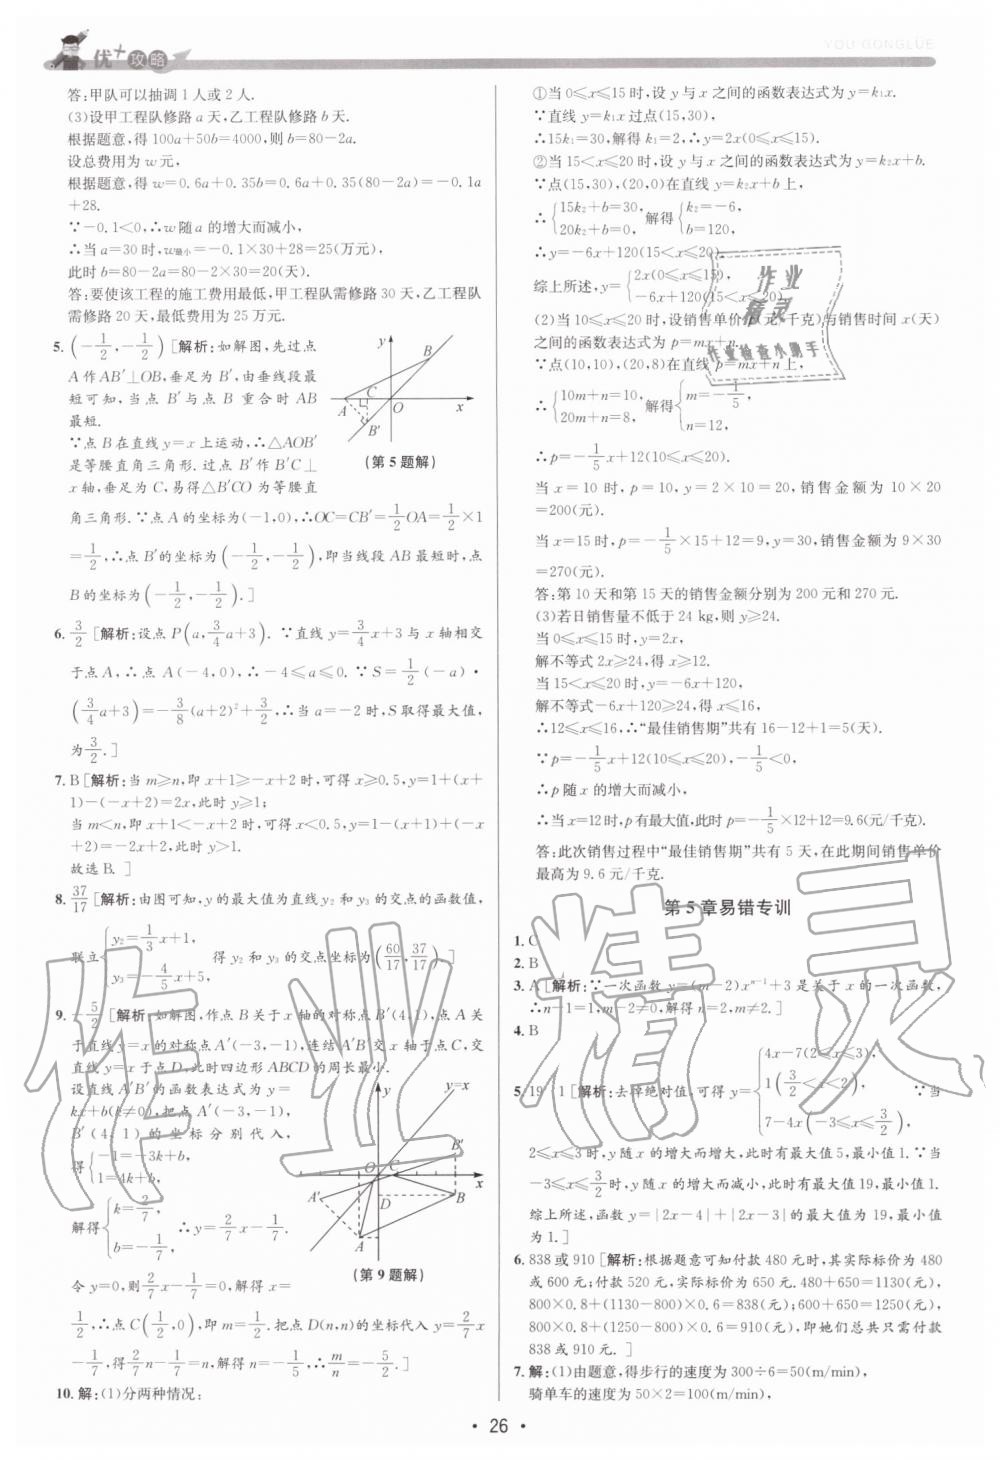 优+攻略
YOU GONGLÜE
答:甲队可以抽调1人或2人.
(3)设甲工程队修路a天,乙工程队修路b天.
根据题意,得100a+50b=4000,则b=80-2a.
设总费用为w元,
根据题意,得w=0.6a+0.35b=0.6a+0.35(80-2a)=-0.1a
+28.
∵-0.1<0,∴w随a的增大而减小,
∴当a=30时,w最小=-0.1×30+28=25(万元),
此时b=80-2a=80-2×30=20(天).
答:要使该工程的施工费用最低,甲工程队需修路30天,乙工程队
需修路20天,最低费用为25万元.
5. (-1/2,-1/2) [解析:如解图,先过点
A作AB′⊥OB,垂足为B′,由垂线段最
短可知,当点B′与点B重合时AB
最短.
∵点B在直线y=x上运动,∴△AOB′
是等腰直角三角形.过点B′作B′C⊥
x轴,垂足为C,易得△B′CO为等腰直
角三角形.∵点A的坐标为(-1,0),∴OC=CB′=1/2OA=1/2×1
=1/2,∴点B′的坐标为(-1/2,-1/2),即当线段AB最短时,点
B的坐标为(-1/2,-1/2).]
y
B
A
C
O
x
B′
(第5题解)
6. 3/2 [解析:设点P(a,3/4a+3).∵直线y=3/4x+3与x轴相交
于点A,∴点A(-4,0),∴-4≤a≤0.∵S=1/2(-a)·
(3/4a+3)=-3/8(a+2)²+3/2,∴当a=-2时,S取得最大值,
为3/2.]
7. B [解析:当m≥n,即x+1≥-x+2时,可得x≥0.5,y=1+(x+
1)-(-x+2)=2x,此时y≥1;
当m<n,即x+1<-x+2时,可得x<0.5,y=1-(x+1)+(-x
+2)=-2x+2,此时y>1.
故选B.]
8. 37/17 [解析:由图可知,y的最大值为直线y₂和y₃的交点的函数值,
联立{y₂=1/3x+1, y₃=-4/5x+5, 得y₂和y₃的交点坐标为(60/17,37/17).]
9. -5/2 [解析:如解图,作点B关于x轴的对称点B′(4,1),点A关
于直线y=x的对称点A′(-3,-1),连结A′B′交x轴于点C,交
直线y=x于点D,此时四边形ABCD的周长最小.
设直线A′B′的函数表达式为y=
kx+b(k≠0),把点A′(-3,-1),
B′(4,1)的坐标分别代入,
得{-1=-3k+b, 1=4k+b,
解得{k=2/7, b=-1/7, ∴y=2/7x-1/7.
令y=0,则2/7x-1/7=0,解得x=
1/2,∴点C(1/2,0),即m=1/2.把点D(n,n)的坐标代入y=2/7x
-1/7,得2/7n-1/7=n,解得n=-1/5,∴m/n=-5/2.]
y
y=x
B′
O
C
x
A′
D
B
A
(第9题解)
10. 解:(1)分两种情况:
①当0≤x≤15时,设y与x之间的函数表达式为y=k₁x.
∵直线y=k₁x过点(15,30),
∴15k₁=30,解得k₁=2,∴y=2x(0≤x≤15).
②当15<x≤20时,设y与x之间的函数表达式为y=k₂x+b.
∵点(15,30),(20,0)在直线y=k₂x+b上,
∴{15k₂+b=30, 20k₂+b=0, 解得{k₂=-6, b=120,
∴y=-6x+120(15<x≤20).
综上所述,y={2x(0≤x≤15), -6x+120(15<x≤20).
(2)当10≤x≤20时,设销售单价p(元/千克)与销售时间x(天)
之间的函数表达式为p=mx+n.
∵点(10,10),(20,8)在直线p=mx+n上,
∴{10m+n=10, 20m+n=8, 解得{m=-1/5, n=12,
∴p=-1/5x+12(10≤x≤20).
当x=10时,p=10,y=2×10=20,销售金额为10×20
=200(元).
当x=15时,p=-1/5×15+12=9,y=30,销售金额为9×30
=270(元).
答:第10天和第15天的销售金额分别为200元和270元.
(3)若日销售量不低于24 kg,则y≥24.
当0≤x≤15时,y=2x,
解不等式2x≥24,得x≥12.
当15<x≤20时,y=-6x+120,
解不等式-6x+120≥24,得x≤16,
∴12≤x≤16,∴“最佳销售期”共有16-12+1=5(天).
∵p=-1/5x+12(10≤x≤20),-1/5<0,
∴p随x的增大而减小,
∴当x=12时,p有最大值,此时p=-1/5×12+12=9.6(元/千克).
答:此次销售过程中“最佳销售期”共有5天,在此期间销售单价
最高为9.6元/千克.
第5章易错专训
1. C
2. B
3. A [解析:∵一次函数y=(m-2)xⁿ⁻¹+3是关于x的一次函数,
∴n-1=1,m-2≠0,解得n=2,m≠2.]
4. B
5. 19 1 [解析:去掉绝对值,可得y={4x-7(2≤x≤3), 1(3/2<x<2), 7-4x(-3≤x≤3/2), ∵当
2≤x≤3时,y随x的增大而增大,此时有最大值5,最小值1.∵当
-3≤x≤3/2时,y随x的增大而减小,此时有最大值19,最小值1.
综上所述,函数y=|2x-4|+|2x-3|的最大值为19,最小值
为1.]
6. 838或910 [解析:根据题意可知付款480元时,其实际标价为480
或600元;付款520元,实际标价为650元.480+650=1130(元),
800×0.8+(1130-800)×0.6=838(元);600+650=1250(元),
800×0.8+(1250-800)×0.6=910(元),即她们总共只需付款
838或910元.]
7. 解:(1)由题意,得步行的速度为300÷6=50(m/min),
骑单车的速度为50×2=100(m/min),
作业
精灵
作业检查小助手
作业精灵
· 26 ·